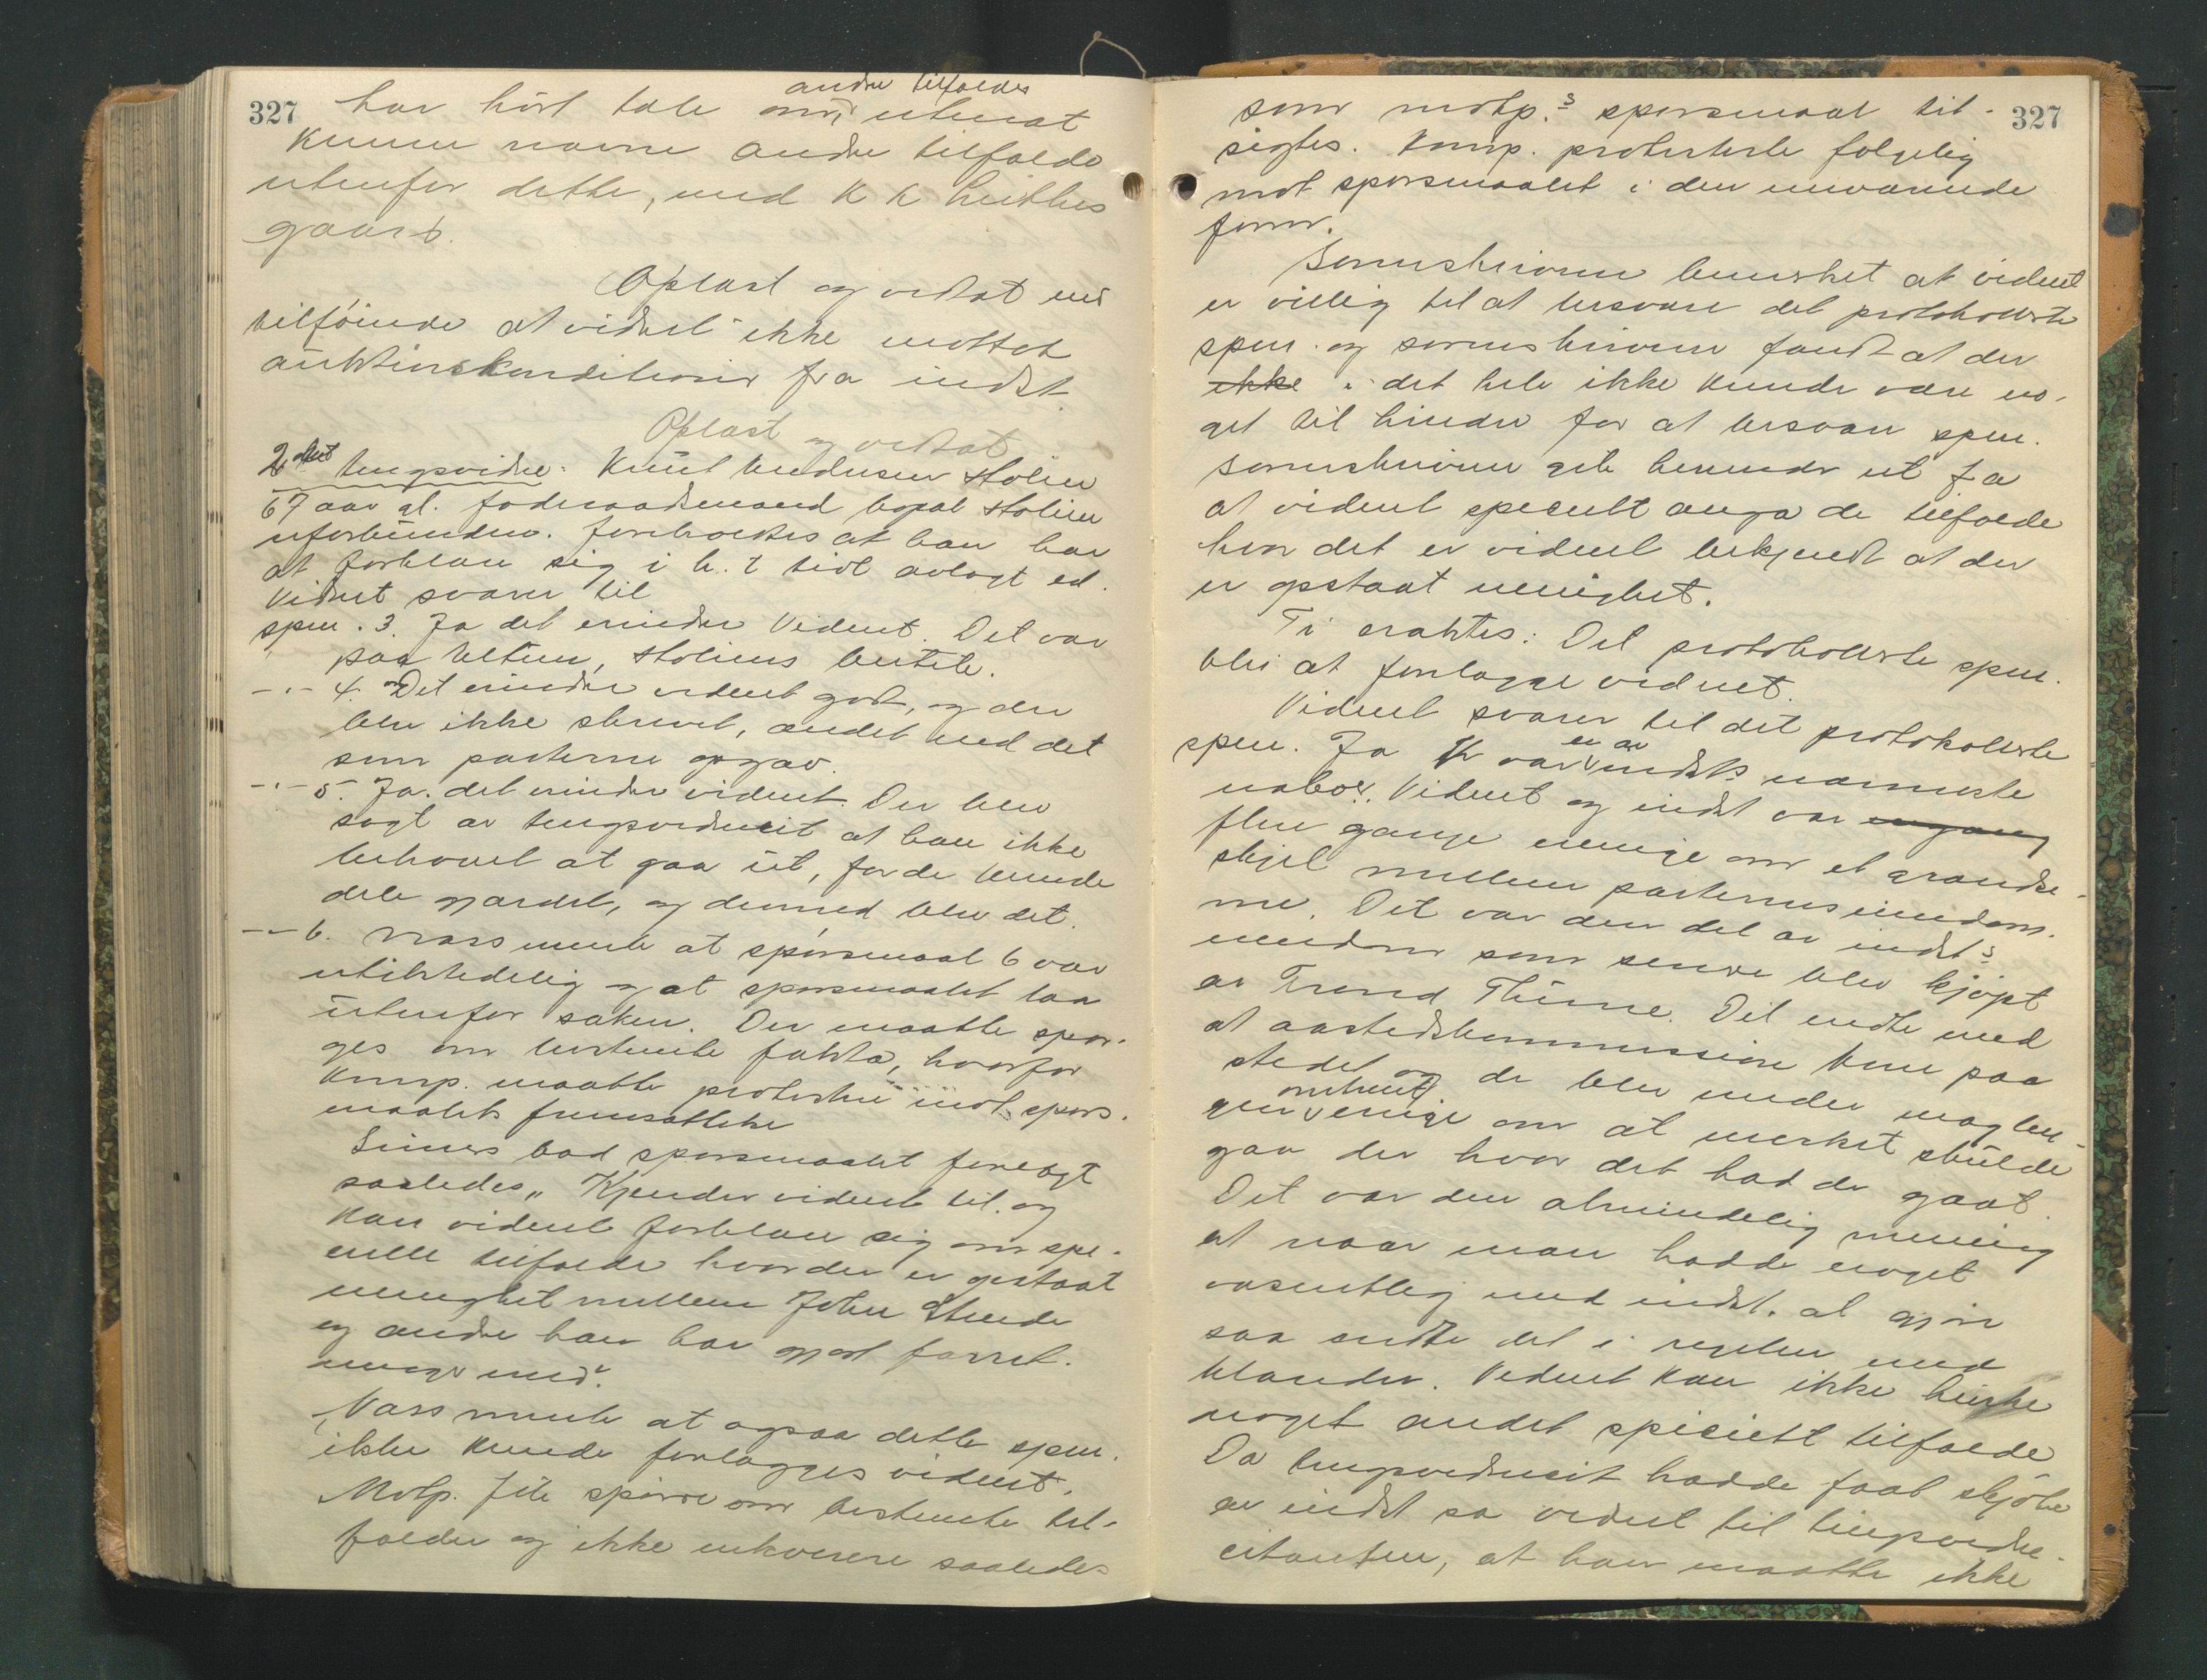 327
andre tilfælde
har hørt tale om, uten at
kunne nævne andre tilfælde
utenfor dette, med K K
gaard.
Oplæst og vedtat med
tilføiende at vidnet ikke mottok
auktionskonditioner fra indst.
Oplæst og vedtat
2det tingsvidne: Knut Knudsen Stolen
67 aar gl. føderaadsmand bopæl Stolen
uforbunden. Foreholdtes at han har
at forklare sig i h. t. tidl avlagt ed.
Vidnet svarer til
spm. 3. Ja det erindrer Vidnet. Det var
paa, Stolens
-"- 4. Det erindrer vidnet godt, og der
blev ikke skrevet, andet end det
som parterne opgav.
-"- 5. Ja. det erindrer vidnet. Der blev
sagt av tingsvidnecit at han ikke
behøvet at gaa ut, for de kunde
dele gjærdet, og dermed blev det.
-"- 6. Nass mente at spørsmaal 6 var
utilstedelig og at spørsmaalet laa
utenfor saken. Der maatte spør-
ges om bestemte fakta, hvorfor
Komp. maatte protestere mot spørs-
maalets fremsættelse
Simers bad spørsmaalet forelagt
saaledes „Kjender vidnet til og
kan vidnet forklare sig om spe-
cielle tilfælde hvor der er opstaat
uenighet mellem John Strende
og andre han har gjort forret-
ninger med".
Nass mente at ogsaa dette spm.
ikke kunde forlægges vidnet.
Motp. fik spørre om bestemte til-
fælder og ikke inkvirere saaledes
327
som motp.s spørsmaal til-
sigtes. Komp. protesterte følgelig
mot spørsmaalet i den nuværende
form.
Sorenskriveren bemerket at vidnet
er villig til at besvare det protokollerte
spm. og sorenskriveren fandt at der
ikke i det hele ikke kunde være no-
get til hinder for at besvare spm.
Sorenskriveren gik herunder ut fra
at vidnet specielt angav de tilfælde
hvor det er vidnet bekjendt at der
er opstaat uenighet.
Ti eraktes: Det protokollerte spm.
blir at forlægge vidnet.
Vidnet svarer til det protokollerte
en av
spm. Ja V var indst.s nærmeste
naboer. Vidnet og indst var engang
flere gange uenige om et grænse-
skjel mellem parternes eiendom-
me. Det var den del av indst.s
eiendom som senere blev kjøpt
av Trond Thune. Det endte med
at aastedskommissionen kom paa
stedet og de blev under mægling-
omtrent
gen enige om at merket skulde
gaa der hvor det hadde gaat.
Det var den almindelig mening
at naar man hadde noget
væsentlig med indst. at gjøre
saa endte det i regelen med
klander. Vidnet kan ikke huske
noget andet specielt tilfælde
Da tingsvidnecit hadde faat skjøte
av indst sa vidnet til tingsvidne-
citanten, at han maatte ikke